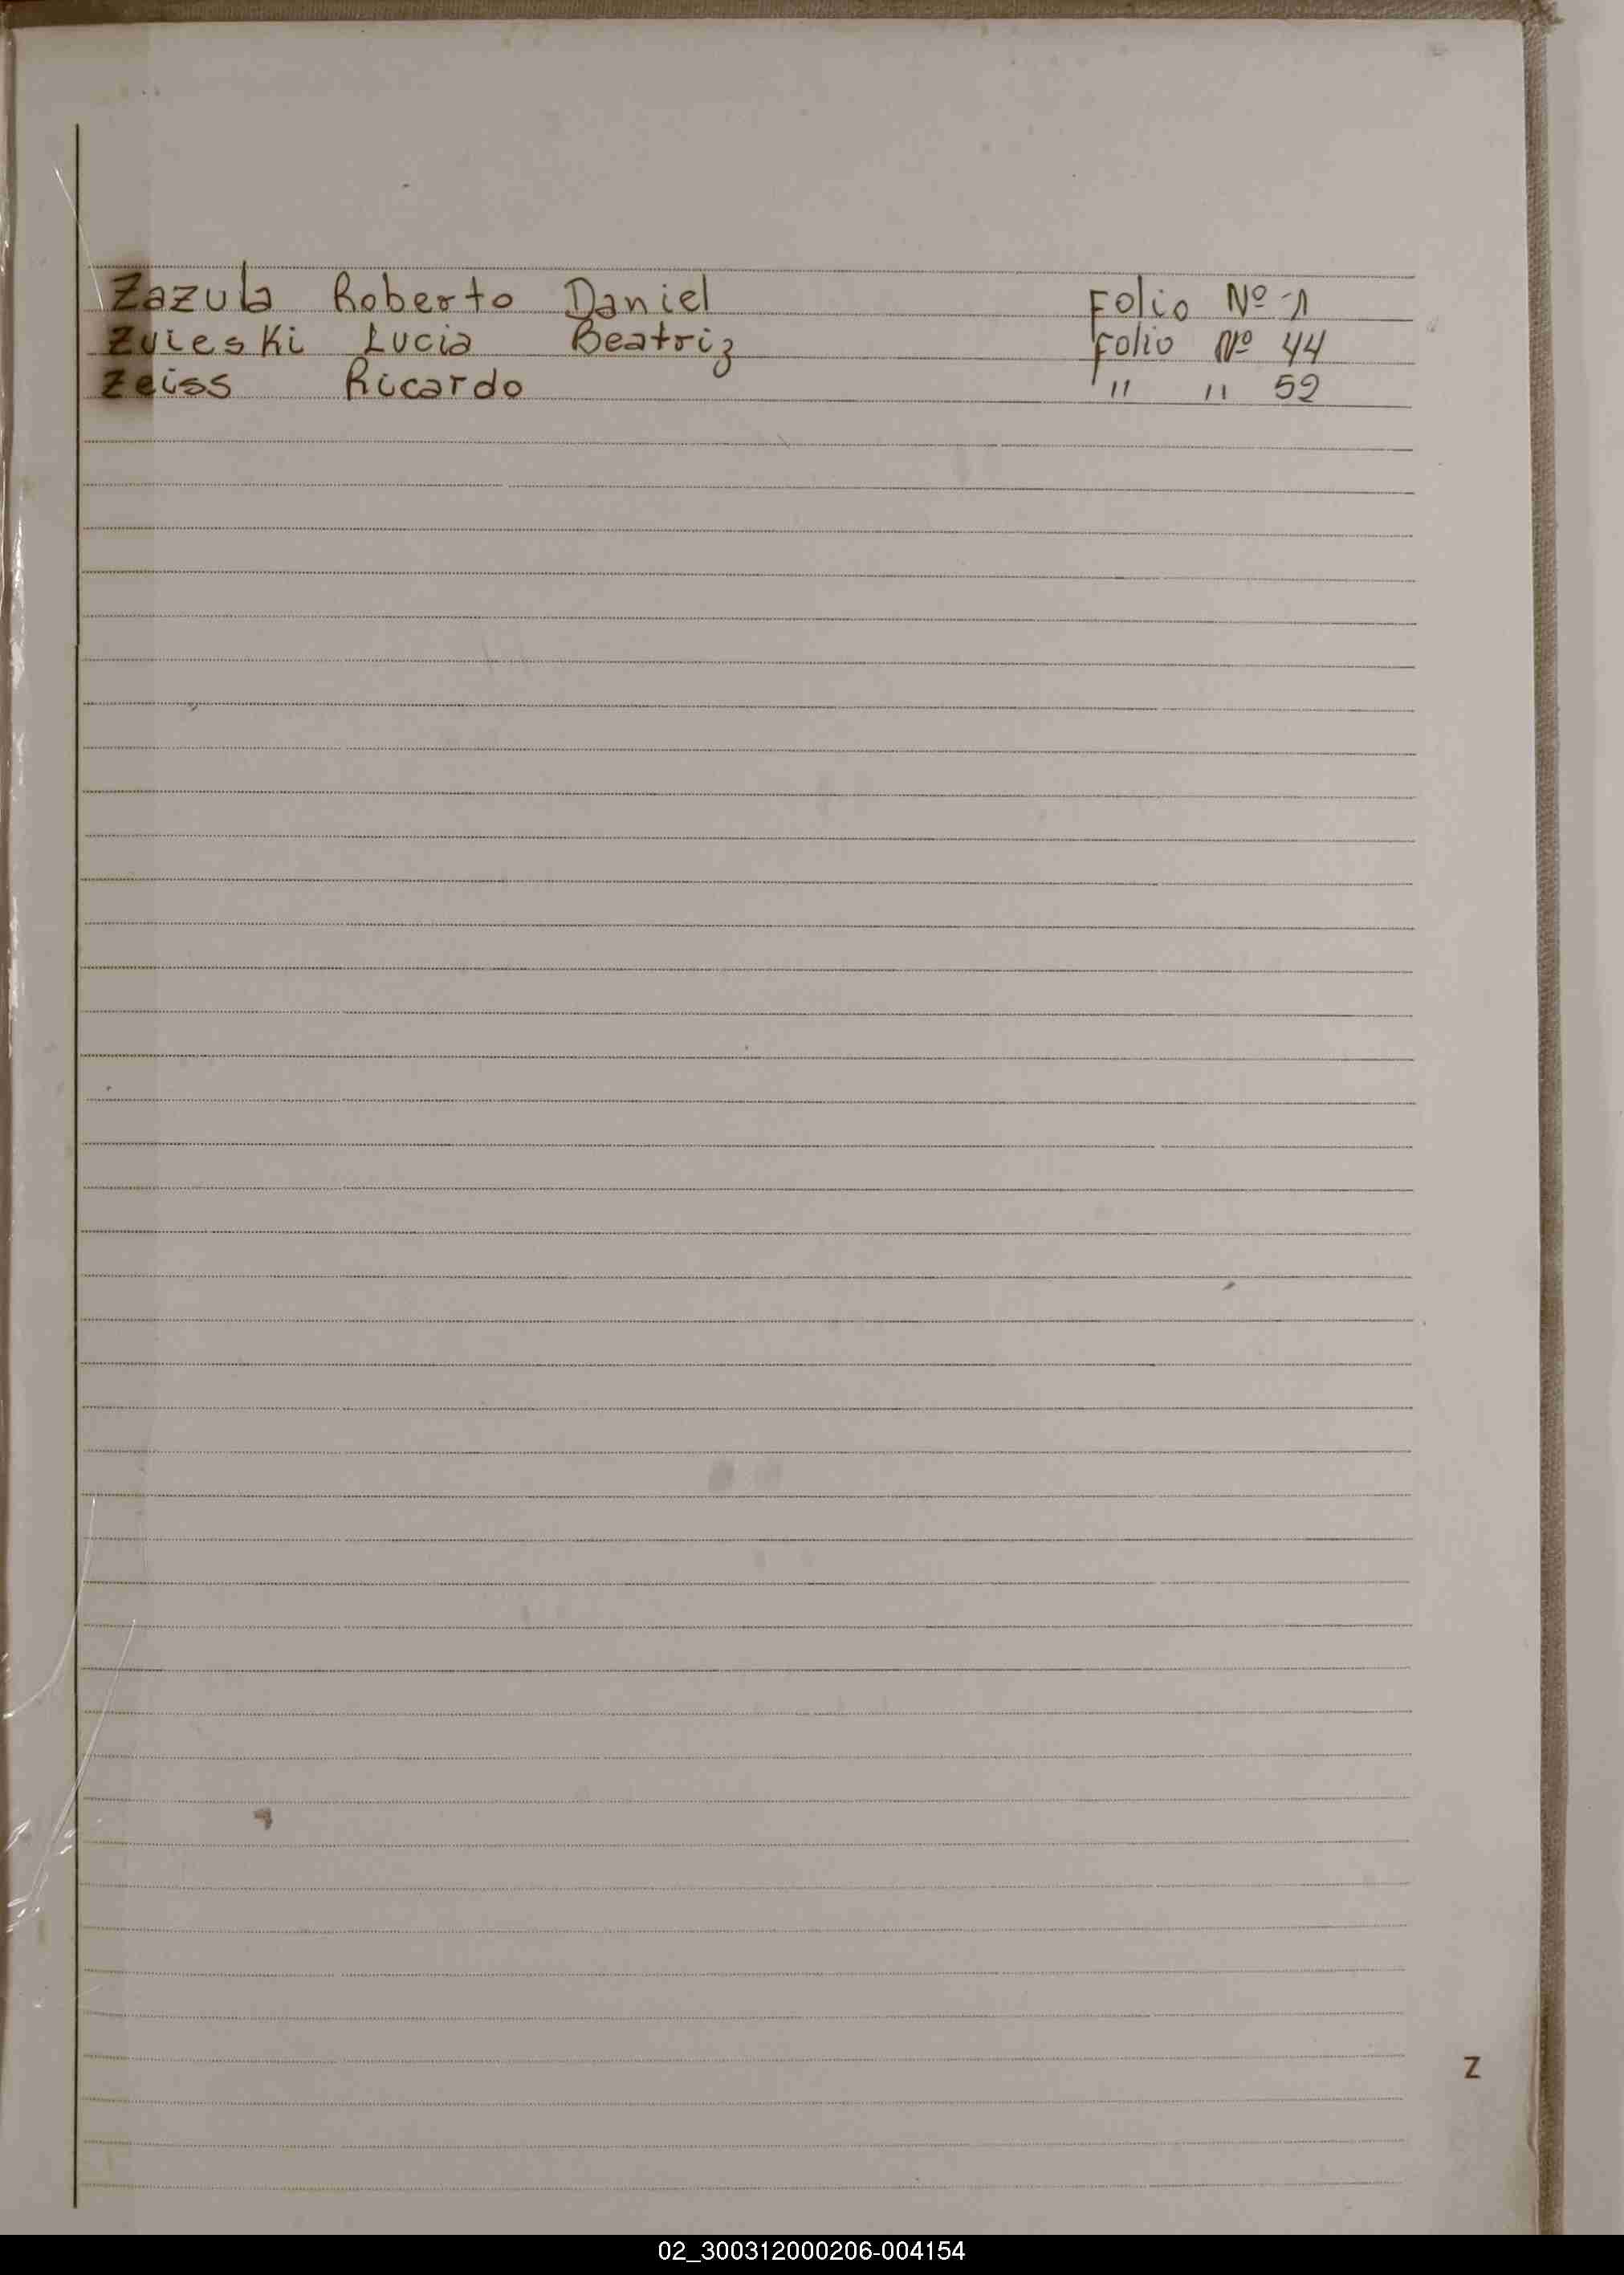 Zazula Roberto Daniel Folio Nº 1
Zvieski Lucia Beatriz Folio Nº 44
Zeiss Ricardo " " 52
Z
02_300312000206-004154